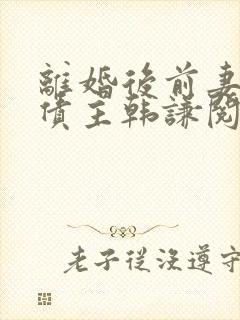 離婚後前妻
債主韩謙閱
老子從沒遵守